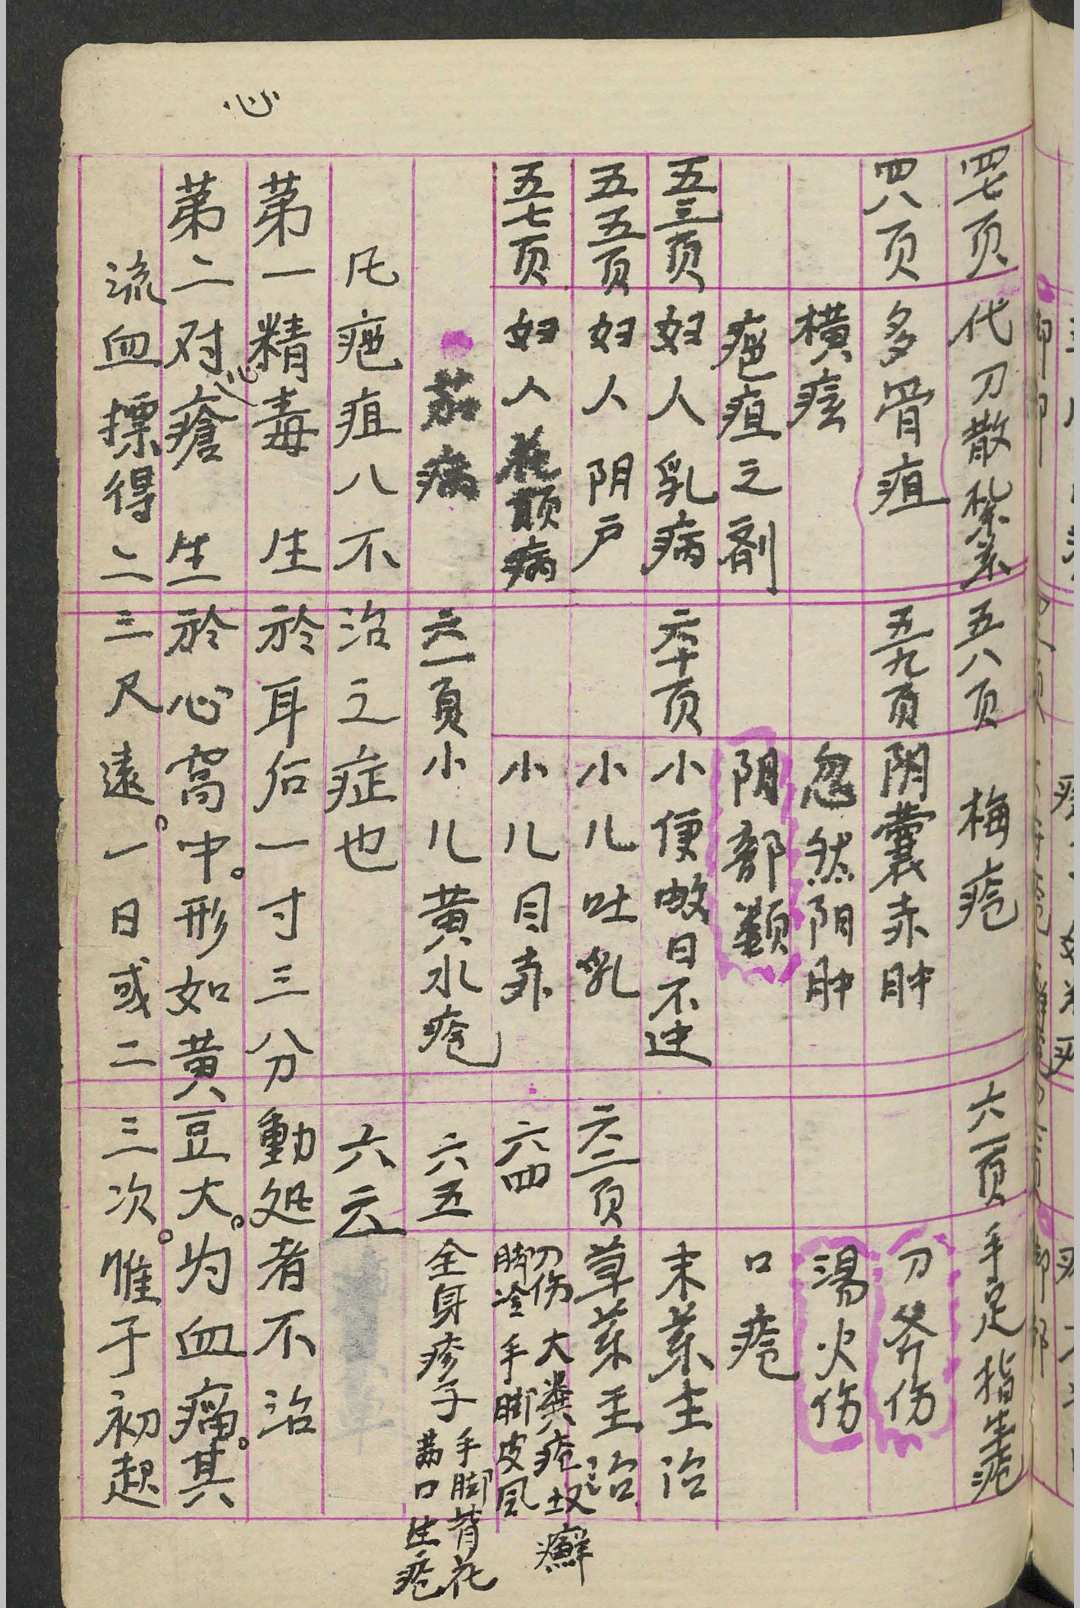 心
四七页 代刀散 五八页 梅疮 六一页 手足指生疮
四八页 多骨疽 五九页 阴囊赤肿 刀斧伤
横痃 忽然阴肿 湯火伤
疤疽之剤 阴部颥 口疮
五三页 妇人乳病 六十页 小便 日不 末薬主治
五五页 妇人阴户 小儿吐乳 六二页 草薬主治
五七页 妇人 颠病 小儿目赤 六四 刀伤 大粪疮 癣
脚冷手脚皮风
茄病 六一頁 小儿黄水疮 六五 全身疹子 手脚背花
口生疮
凡疤疽八不治之症也 六云
苐一精毒 生於耳后一寸三分動処者不治
苐二对心瘡 生於心窩中。形如黄豆大。为血痛。其
流血摽得二三尺遠。一日或二三次。惟于初起